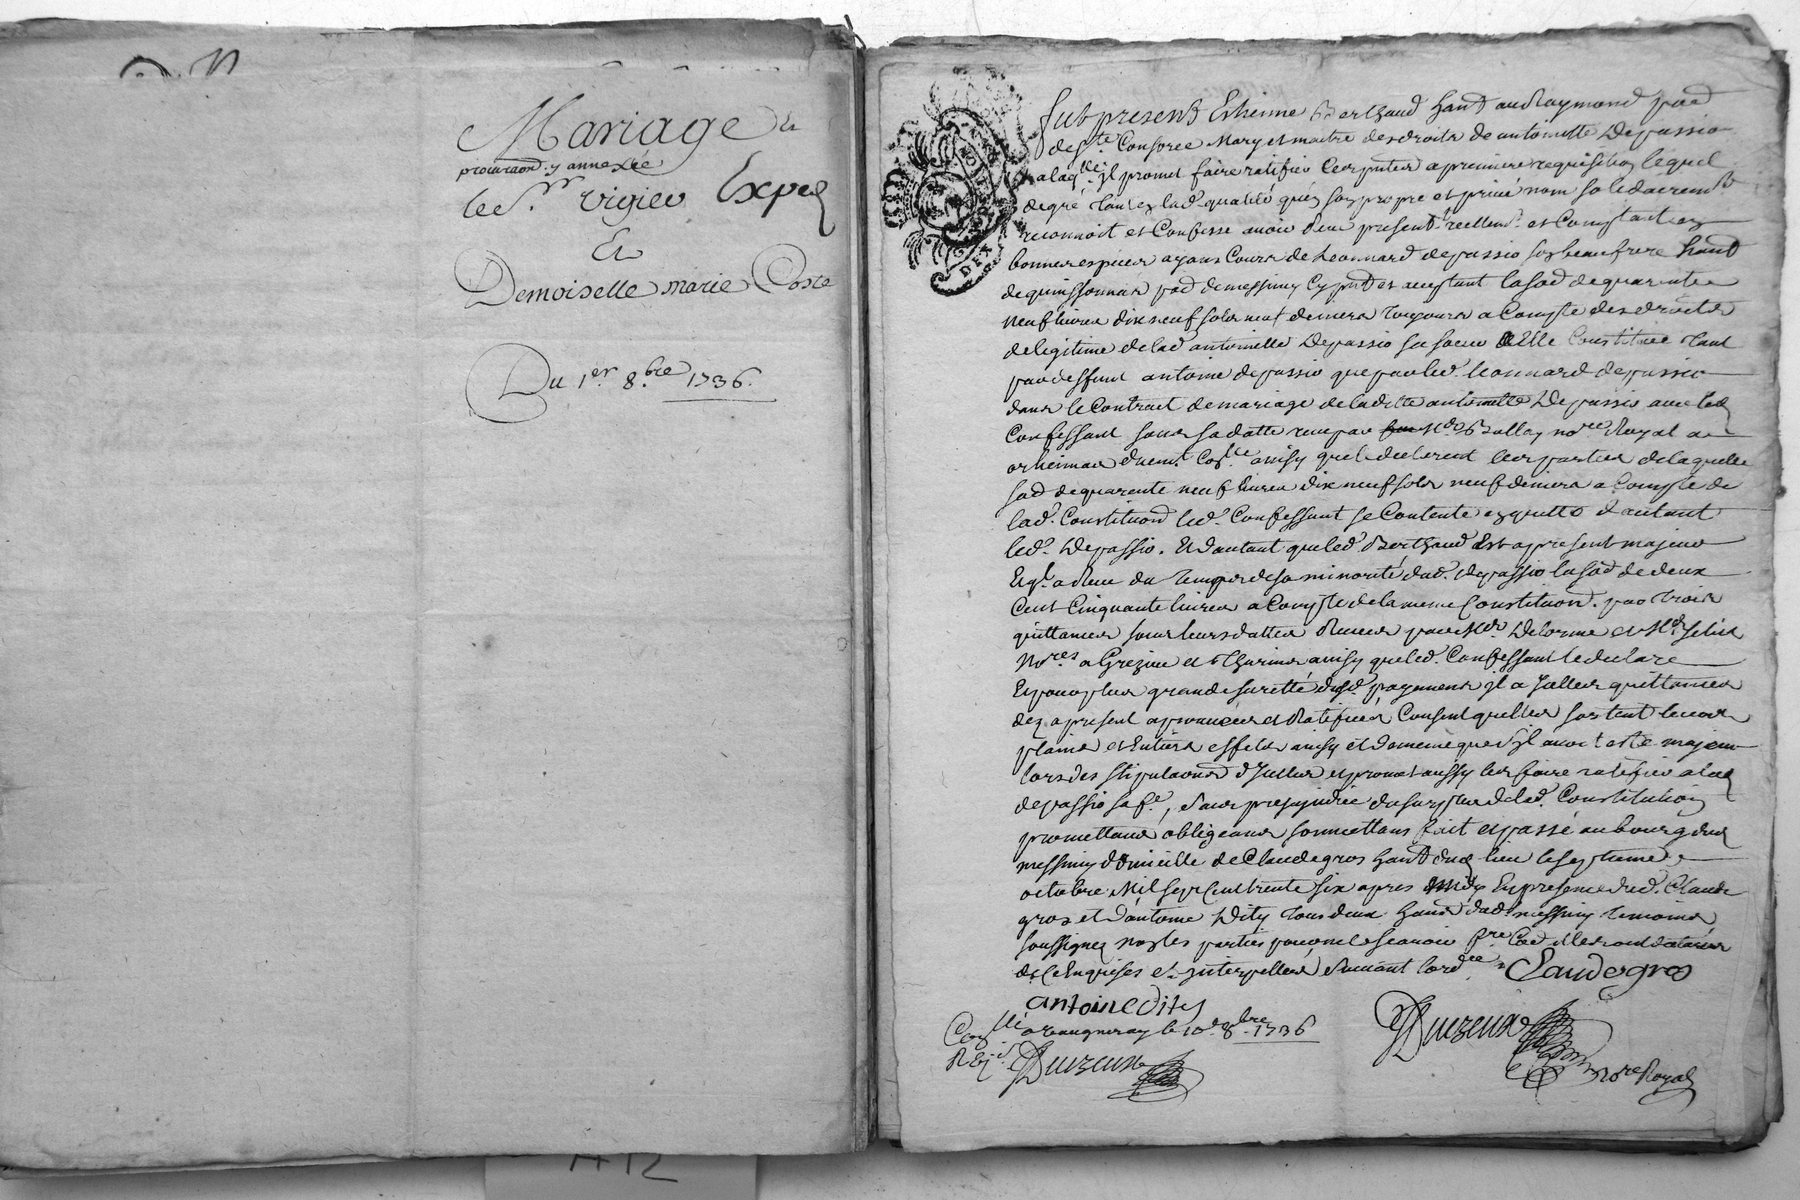 Mariage de
procuraon. y annexée
le Sr. vigier Exped
Et
Demoiselle marie Coste
Du 1er 8.bre 1736.
fut present Etienne Berthaud hant. au Raymond pard.
de Ste Consorce Mary et maitre des droits de antoinette Depassio
a laqlle. il promet faire ratifier les pntes a premiere requisition lequel
de gré tant en lad. qualité qu'en son propre et privé nom solidairemt
reconnoit et Confesse avoir reçu presentt. reellemt. et Comptant en
bonnes especes ayans Cours de Leonnard depassio son beaufrere hant
de quinssonnas pard de messimy Cy pnt et aceptant la sod de quarente
neuf livres dix neuf sols neuf deniers toujours a Compte des droits
de legitime de lad. antoinette Depassio sa soeur a Elle Constituée tant
par deffunt antoine depassio que par led. leonnard depassio
dans le Contract de mariage de laditte antoinette Depassio avec led
Confessant sous sa datte reçu par Me Ballay nore. Royal a
duemt. Collé. ainsy que le declarent les parties de laquelle
sod de quarente neuf livres dix neuf sols neuf deniers a Compte de
lad. Constituon led. Confessant se Contente en quitte d'autant
led. Depassio. Et d'autant que led. Berthaud Est apresent majeur
Et ql. a Reçu du temps de sa minorité dud. depassio la sod de deux
Cent Cinquante livres a Compte de la meme Constituon. par trois
quittances sous leurs dattes Reçues par Mes. Delorme et Me.
Nores a Grezieu et Thurins ainsy que led. Confessant le declare
Et pour plus grande suretté desd. payemens il a Jcelles quittances
dez apresent aprouvées et Ratifiées Consent quelles sortent leurs
plains et Entiers effets ainsy et de meme que s'il avoit esté majeur
lors des stipulaons d'Jcelles et promet aussy les faire ratifier a lad
depassio sa fe, sans prejudice du surplus de lad. Constitution
promettans obligeans soumettans fait et passé au bourg dud
messimy domicille de Claude gros hant dud lieu le septieme
octobre Mil sept Cent trente six apres midy En presence dud. Claude
gros et d'antoine Dity tous deux hans dud messimy temoins
soussignez non les parties pour ne le scavoir
de Ce Enquises et interpellées suivant lordce. Claude gros
antoine dity
Collé a vaugneray le 10e 8.bre 1736
Duzeux
Duzeux
nore Royal
A12